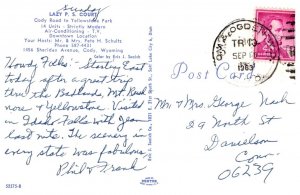 Sunday
LAZY P. S. COURT
Cody Road to Yellowstone Park
14 Units - Strictly Modern
Air-Conditioning - T.V.
Downtown Location
Your Hosts: Mr. & Mrs. Pete H. Schultz
Phone 587-4431
1456 Sheridan Avenue, Cody, Wyoming
Color by Eric J. Seaich
Howdy Folks: Starting E
today after a great trip
thru the Badlands, Mt. Rush
more & Yellowstone. Visited
in Idaho Falls with Jean
last nite. The scenery in
every state was fabulous.
Phil & Frank
Post Card
Mr & Mrs. George Nash
29 North St
Danielson
Conn
06239